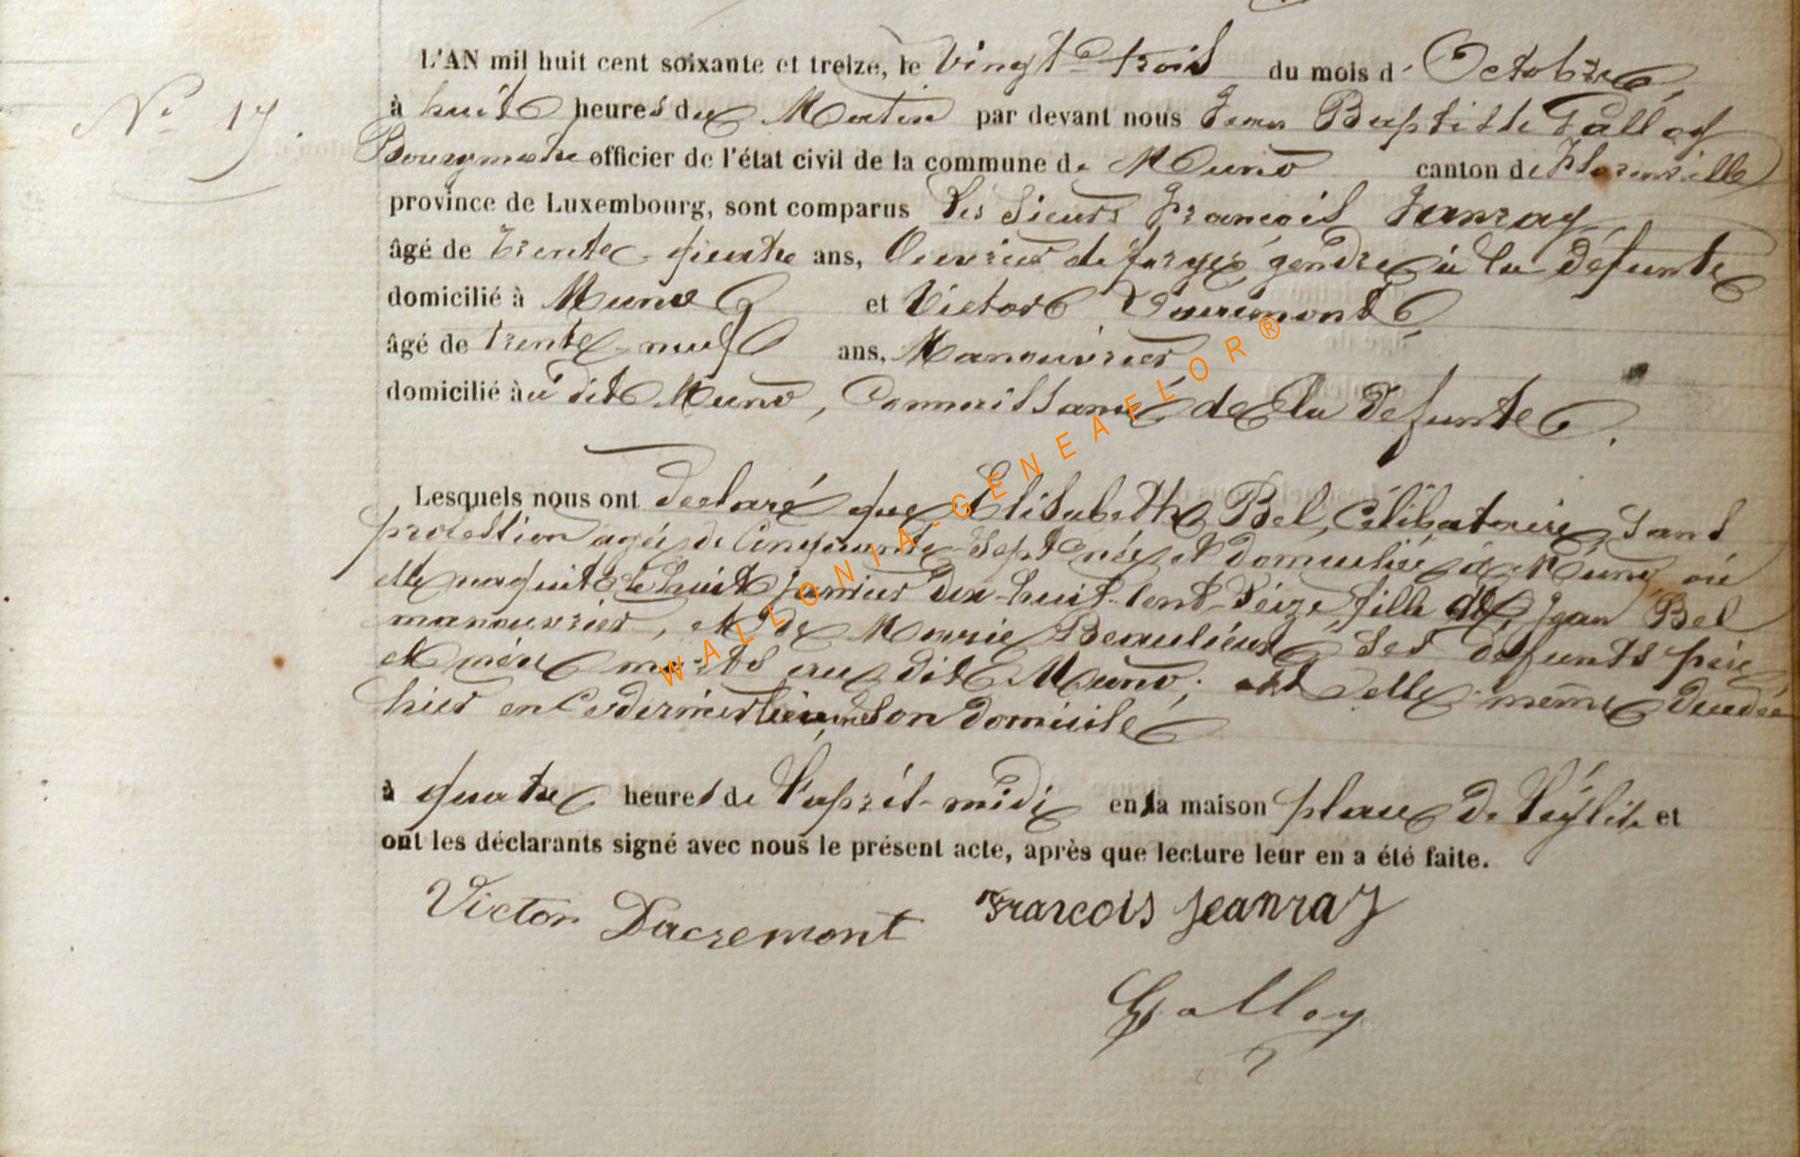 L'AN mil huit cent soixante et treize, le Vingt-trois du mois d' Octobre,
N° 17.
à huit heures du Matin par devant nous Jean Baptiste Galloy
Bourgmestre officier de l'état civil de la commune de Muno canton de Florenville
province de Luxembourg, sont comparus les Sieurs François Janray
âgé de trente-quatre ans, Ouvrier de forges gendre à la défunte
domicilié à Muno et Victor Dacremont
âgé de trente-neuf ans, Manouvrier
domicilié àu dit Muno, Connaissance de la défunte.
Lesquels nous ont declaré que Elisabeth Bel, Célibataire, sans
profession agée de Cinquante-sept ans et domiciliée à Muno, où
elle naquit le huit janvier dix-huit-cent-seize, fille de Jean Bel
manouvrier, et de Marie Beaulieux ses défunts père
et mère morts au dit Muno; est elle-même décédée
hier en ce dernier lieu, en son domicile
à quatre heures de l'après-midi en la maison place de l'église et
ont les déclarants signé avec nous le présent acte, après que lecture leur en a été faite.
Victor Dacremont Francois Jeanray
Galloy
WALLONIA-GENEAFLOR®